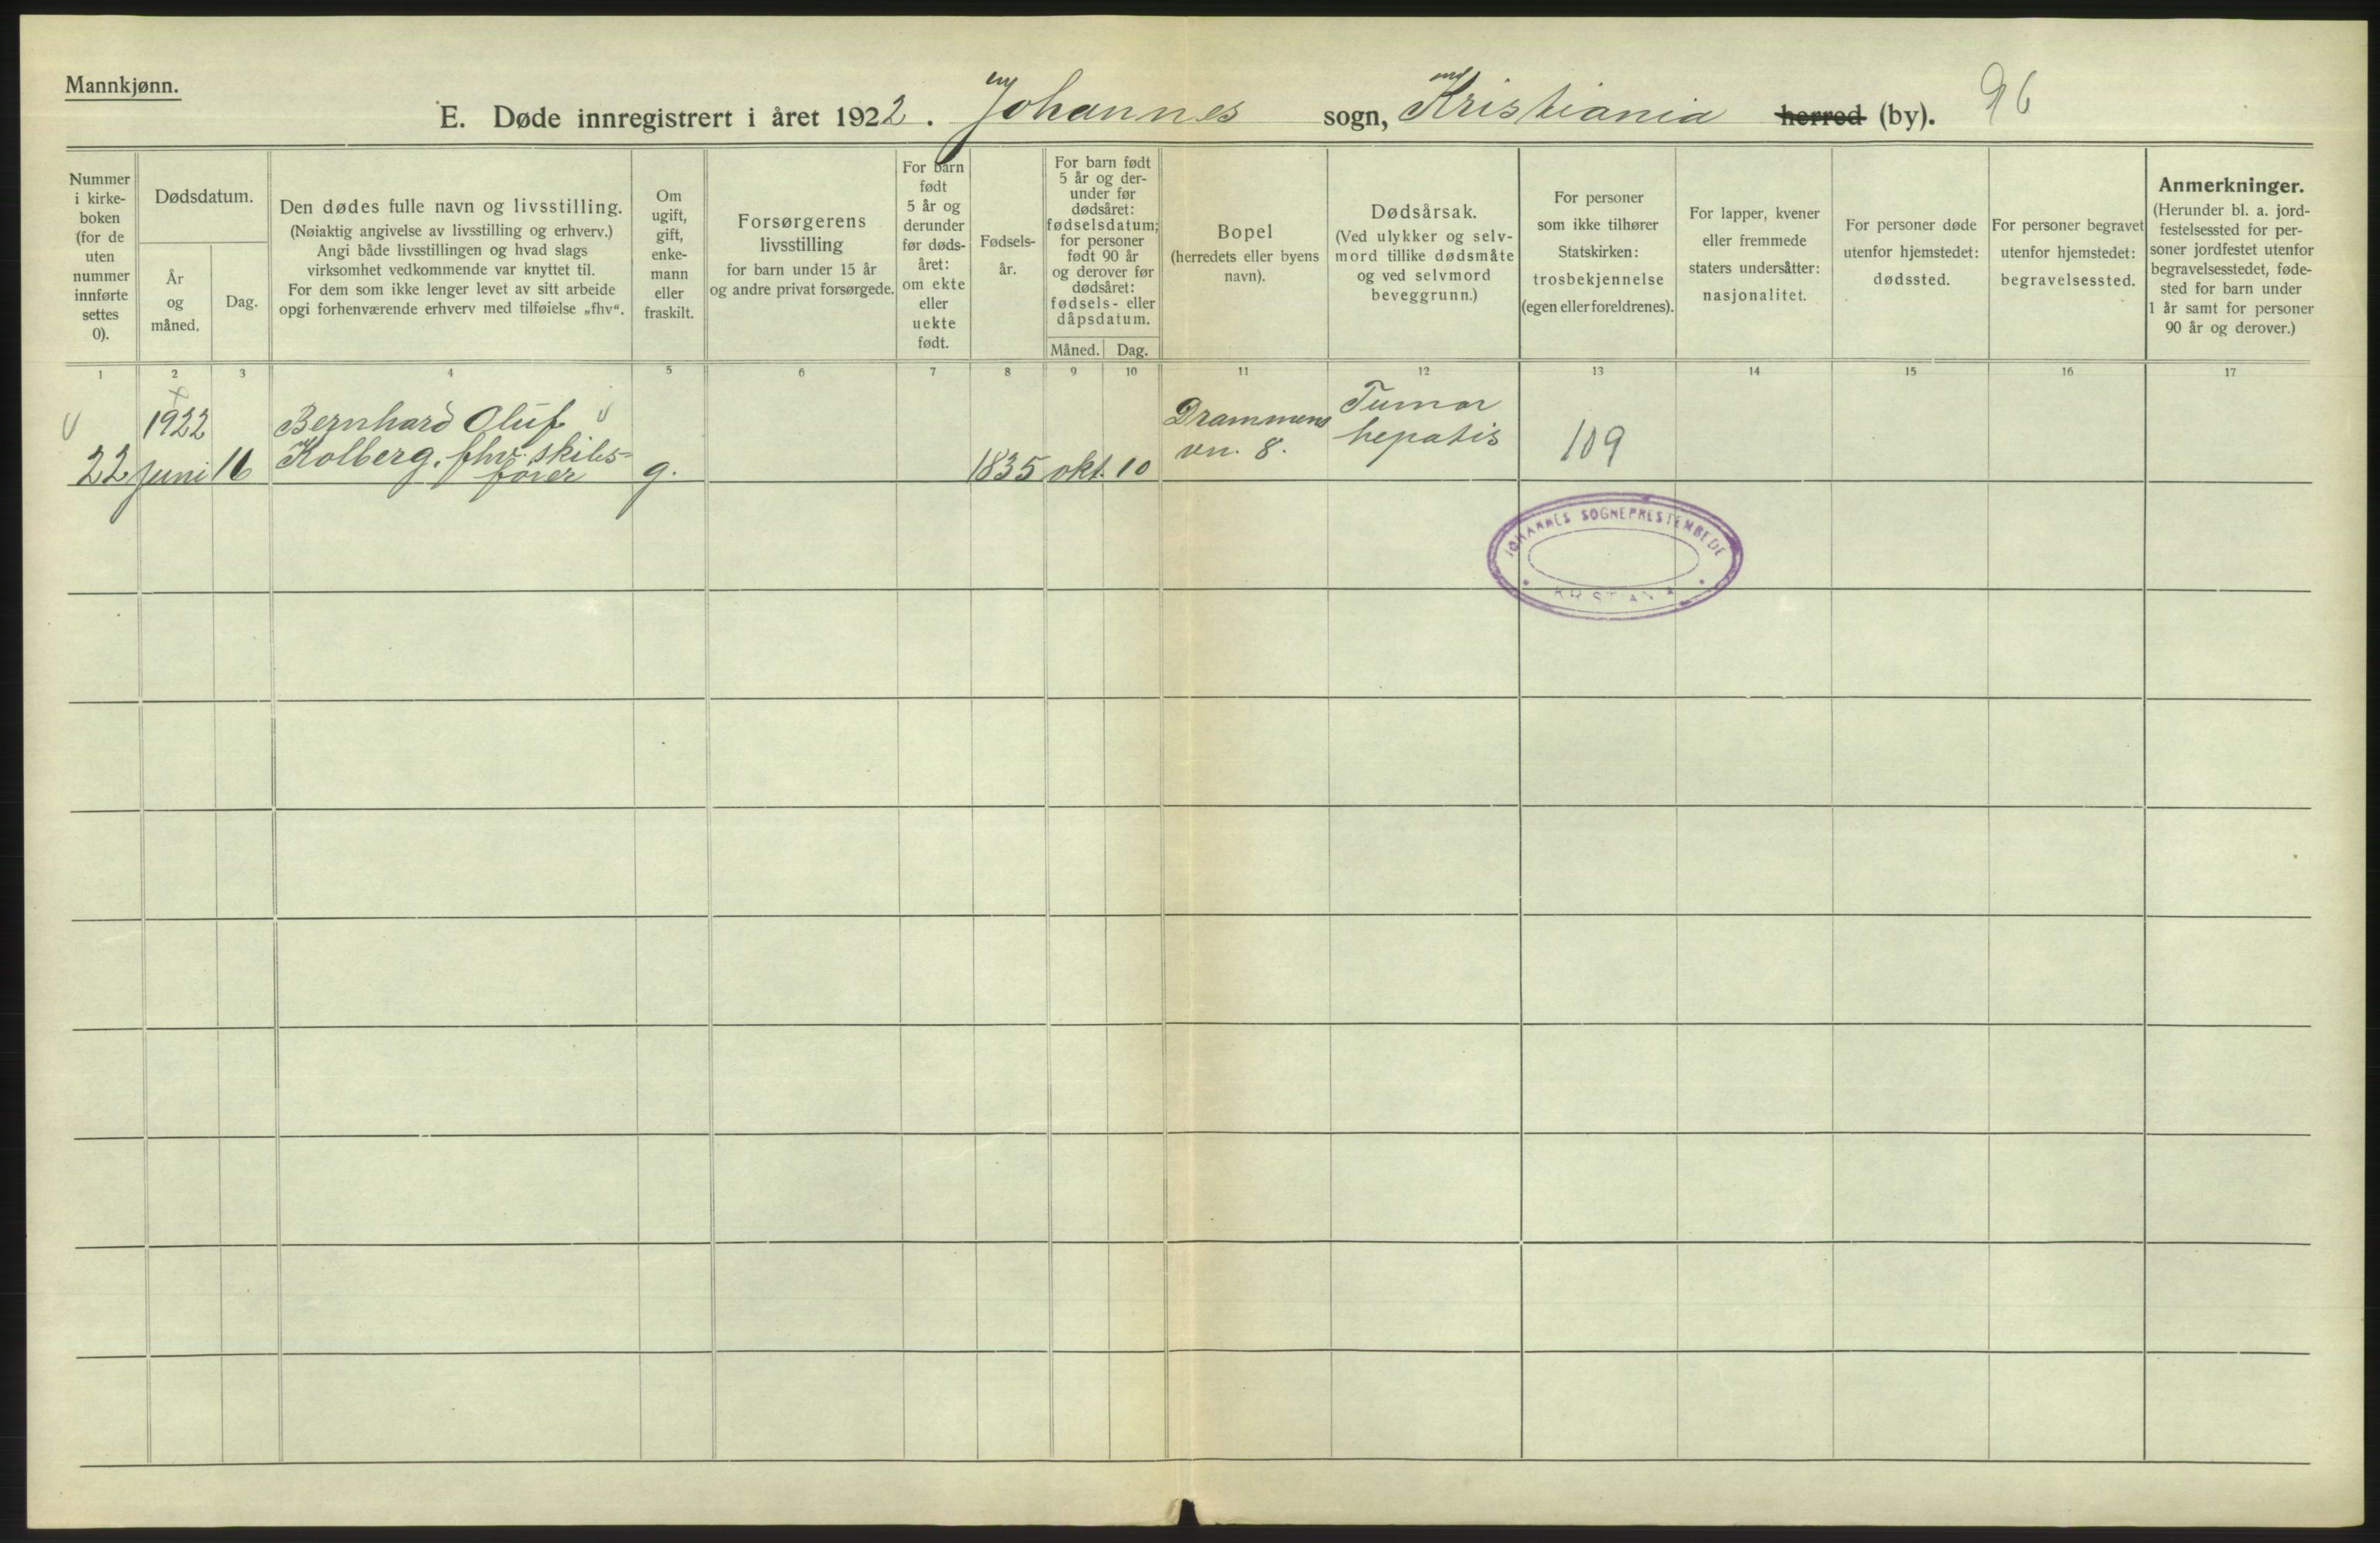 Mannkjønn.
E. Døde innregistrert i året 1922. Johannes sogn, Kristiania herred (by). 96
Nummer
i kirke-
boken
(for de
uten
nummer
innførte
settes
0).
Dødsdatum.
År
og
måned.
Dag.
Den dødes fulle navn og livsstilling.
(Nøiaktig angivelse av livsstilling og erhverv.)
Angi både livsstillingen og hvad slags
virksomhet vedkommende var knyttet til.
For dem som ikke lenger levet av sitt arbeide
opgi forhenværende erhverv med tilføielse „fhv“.
Om
ugift,
gift,
enke-
mann
eller
fraskilt.
Forsørgerens
livsstilling
for barn under 15 år
og andre privat forsørgede.
For barn
født
5 år og
derunder
før døds-
året:
om ekte
eller
uekte
født.
Fødsels-
år.
For barn født
5 år og der-
under før
dødsåret:
fødselsdatum;
for personer
født 90 år
og derover før
dødsåret:
fødsels- eller
dåpsdatum.
Måned. Dag.
Bopel
(herredets eller byens
navn).
Dødsårsak.
(Ved ulykker og selv-
mord tillike dødsmåte
og ved selvmord
beveggrunn.)
For personer
som ikke tilhører
Statskirken:
trosbekjennelse
(egen eller foreldrenes).
For lapper, kvener
eller fremmede
staters undersåtter:
nasjonalitet.
For personer døde
utenfor hjemstedet:
dødssted.
For personer begravet
utenfor hjemstedet:
begravelsessted.
Anmerkninger.
(Herunder bl. a. jord-
festelsessted for per-
soner jordfestet utenfor
begravelsesstedet, føde-
sted for barn under
1 år samt for personer
90 år og derover.)
1 2 3 4 5 6 7 8 9 10 11 12 13 14 15 16 17
22
1922
juni
16
Bernhard Oluf
Kolberg, fhv. skibs-
fører
g.
1835
okt.
10
Drammens
vn. 8.
Tumor
hepatis
109
JOHANNES SOGNEPRESTEMBEDE
KRISTIANIA